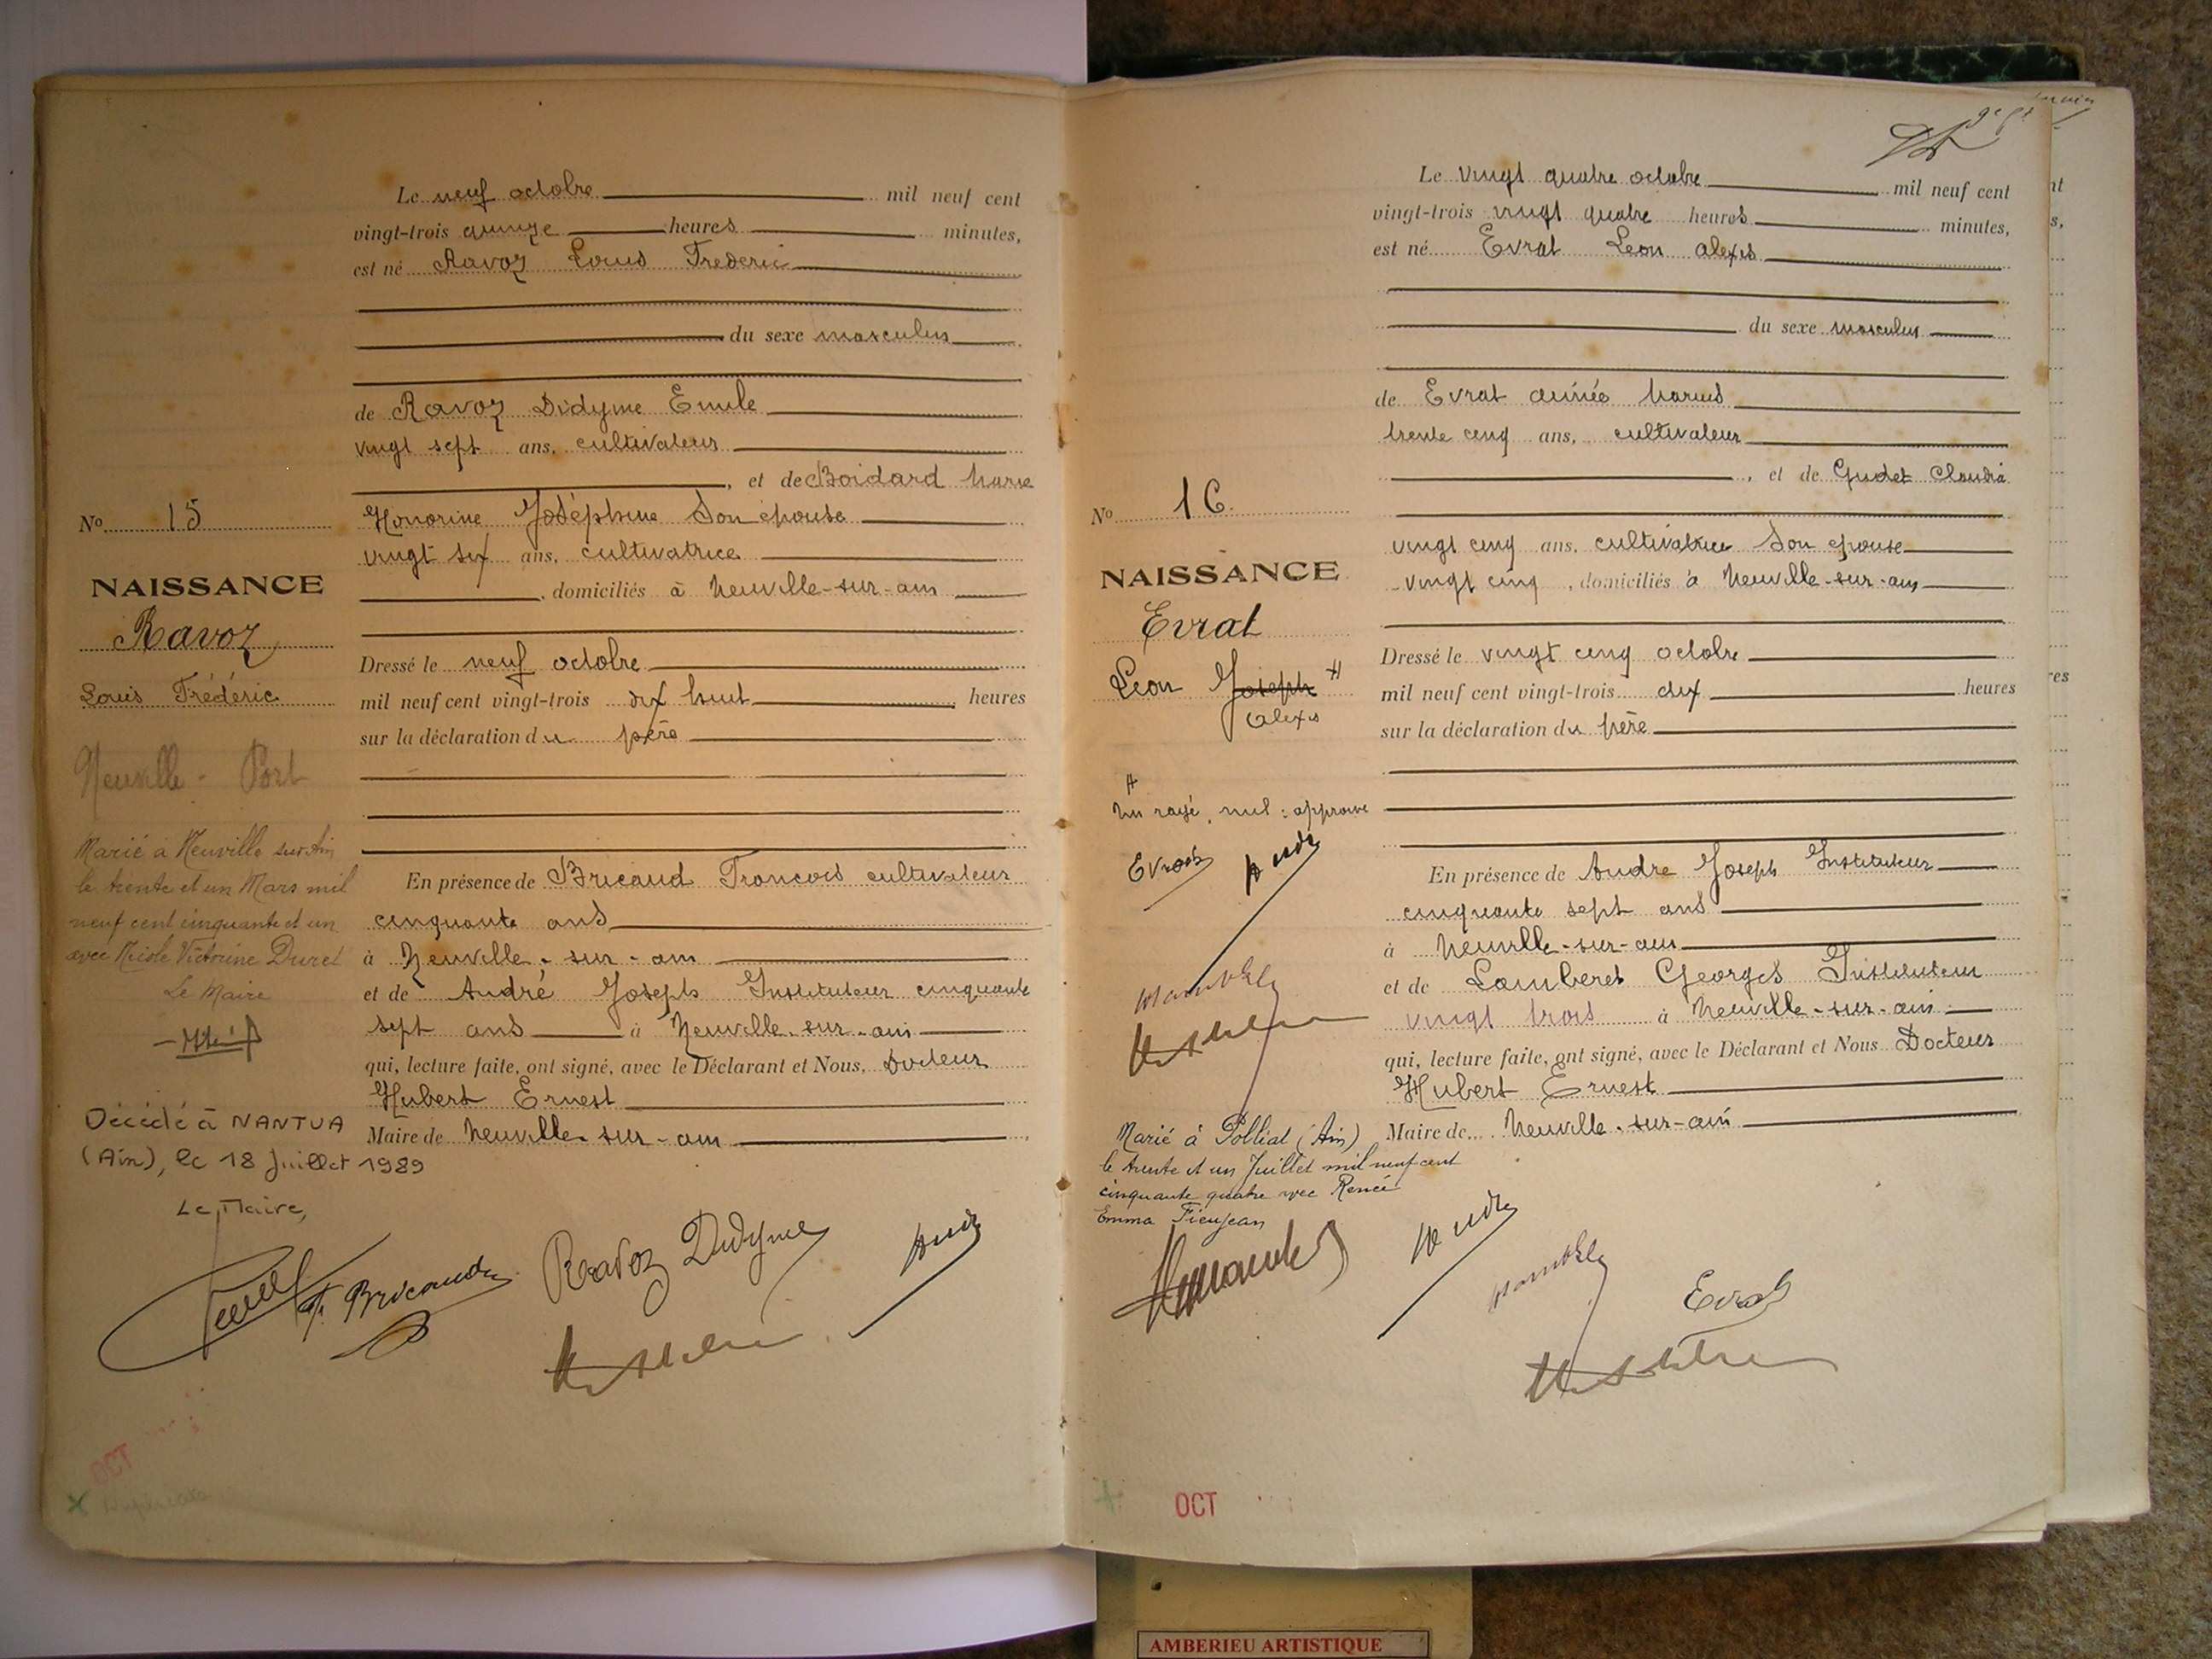 Le neuf octobre mil neuf cent
vingt-trois quinze heures minutes,
est né Ravoz Louis Frederic
du sexe masculin
de Ravoz Didyme Emile
vingt sept ans, cultivateur
, et de Boidard Marie
Honorine Joséphine Son épouse
vingt six ans, cultivatrice
, domiciliés à Neuville-sur-ain
Dressé le neuf octobre
mil neuf cent vingt-trois dix huit heures
sur la déclaration du père
En présence de Bricaud François cultivateur
cinquante ans
à Neuville-sur-ain
et de André Joseph Instituteur cinquante
sept ans à Neuville-sur-ain
qui, lecture faite, ont signé, avec le Déclarant et Nous, Docteur
Hubert Ernest
Maire de Neuville-sur-ain
No 15
NAISSANCE
Ravoz
Louis Frédéric
Neuville - Port
Marié à Neuville sur Ain
le trente et un Mars mil
neuf cent cinquante et un
avec Nicole Victorine Duret
Le Maire
Décédé à NANTUA
(Ain), le 18 Juillet 1989
Le Maire,
F. Bricaud
Ravoz Didyme
André
OCT
Le vingt quatre octobre mil neuf cent
vingt-trois vingt quatre heures minutes,
est né Evrat Leon alexis
du sexe masculin
de Evrat aimée Marius
trente cinq ans, cultivateur
, et de Gudet Claudia
vingt cinq ans, cultivatrice Son épouse
vingt cinq , domiciliés à Neuville-sur-ain
Dressé le vingt cinq octobre
mil neuf cent vingt-trois dix heures
sur la déclaration du père
En présence de Andre Joseph Instituteur
cinquante sept ans
à Neuville-sur-ain
et de Lamberet Georges Instituteur
vingt trois à Neuville-sur-ain
qui, lecture faite, ont signé, avec le Déclarant et Nous Docteur
Hubert Ernest
Maire de Neuville-sur-ain
No 16
NAISSANCE
Evrat
Leon Joseph
alexis
Un rayé, nul: approuvé
Evrat
André
Marié à Polliat (Ain)
le trente et un Juillet mil neuf cent
cinquante quatre avec Renée
Emma Fieujean
André
Evrat
OCT
AMBERIEU ARTISTIQUE